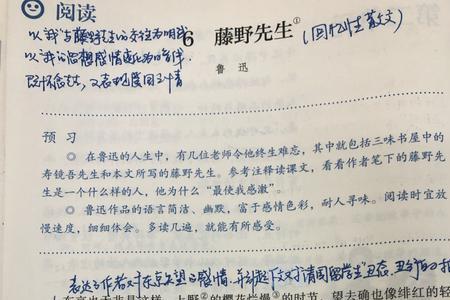 阅读
以“我”与藤野先生的交往为明线
6 藤野先生①
(回忆性散文)
以“我”的思想感情变化为暗线
既怀念先生，又表现爱国之情
鲁迅
预 习
◎ 在鲁迅的人生中，有几位老师令他终生难忘，其中就包括三味书屋中的
寿镜吾先生和本文所写的藤野先生。参考注释读课文，看看作者笔下的藤野先
生是一个什么样的人，他为什么“最使我感激”。
◎ 鲁迅作品的语言简洁、幽默，富于感情色彩，耐人寻味。阅读时宜放
慢速度，细细体会。多读几遍，就能有所感受。
表达了作者对东京失望的感情，并引起下文对清国留学生丑态
东京也无非是这样。上野②的樱花烂熳③的时节，望去确也像绯红的轻